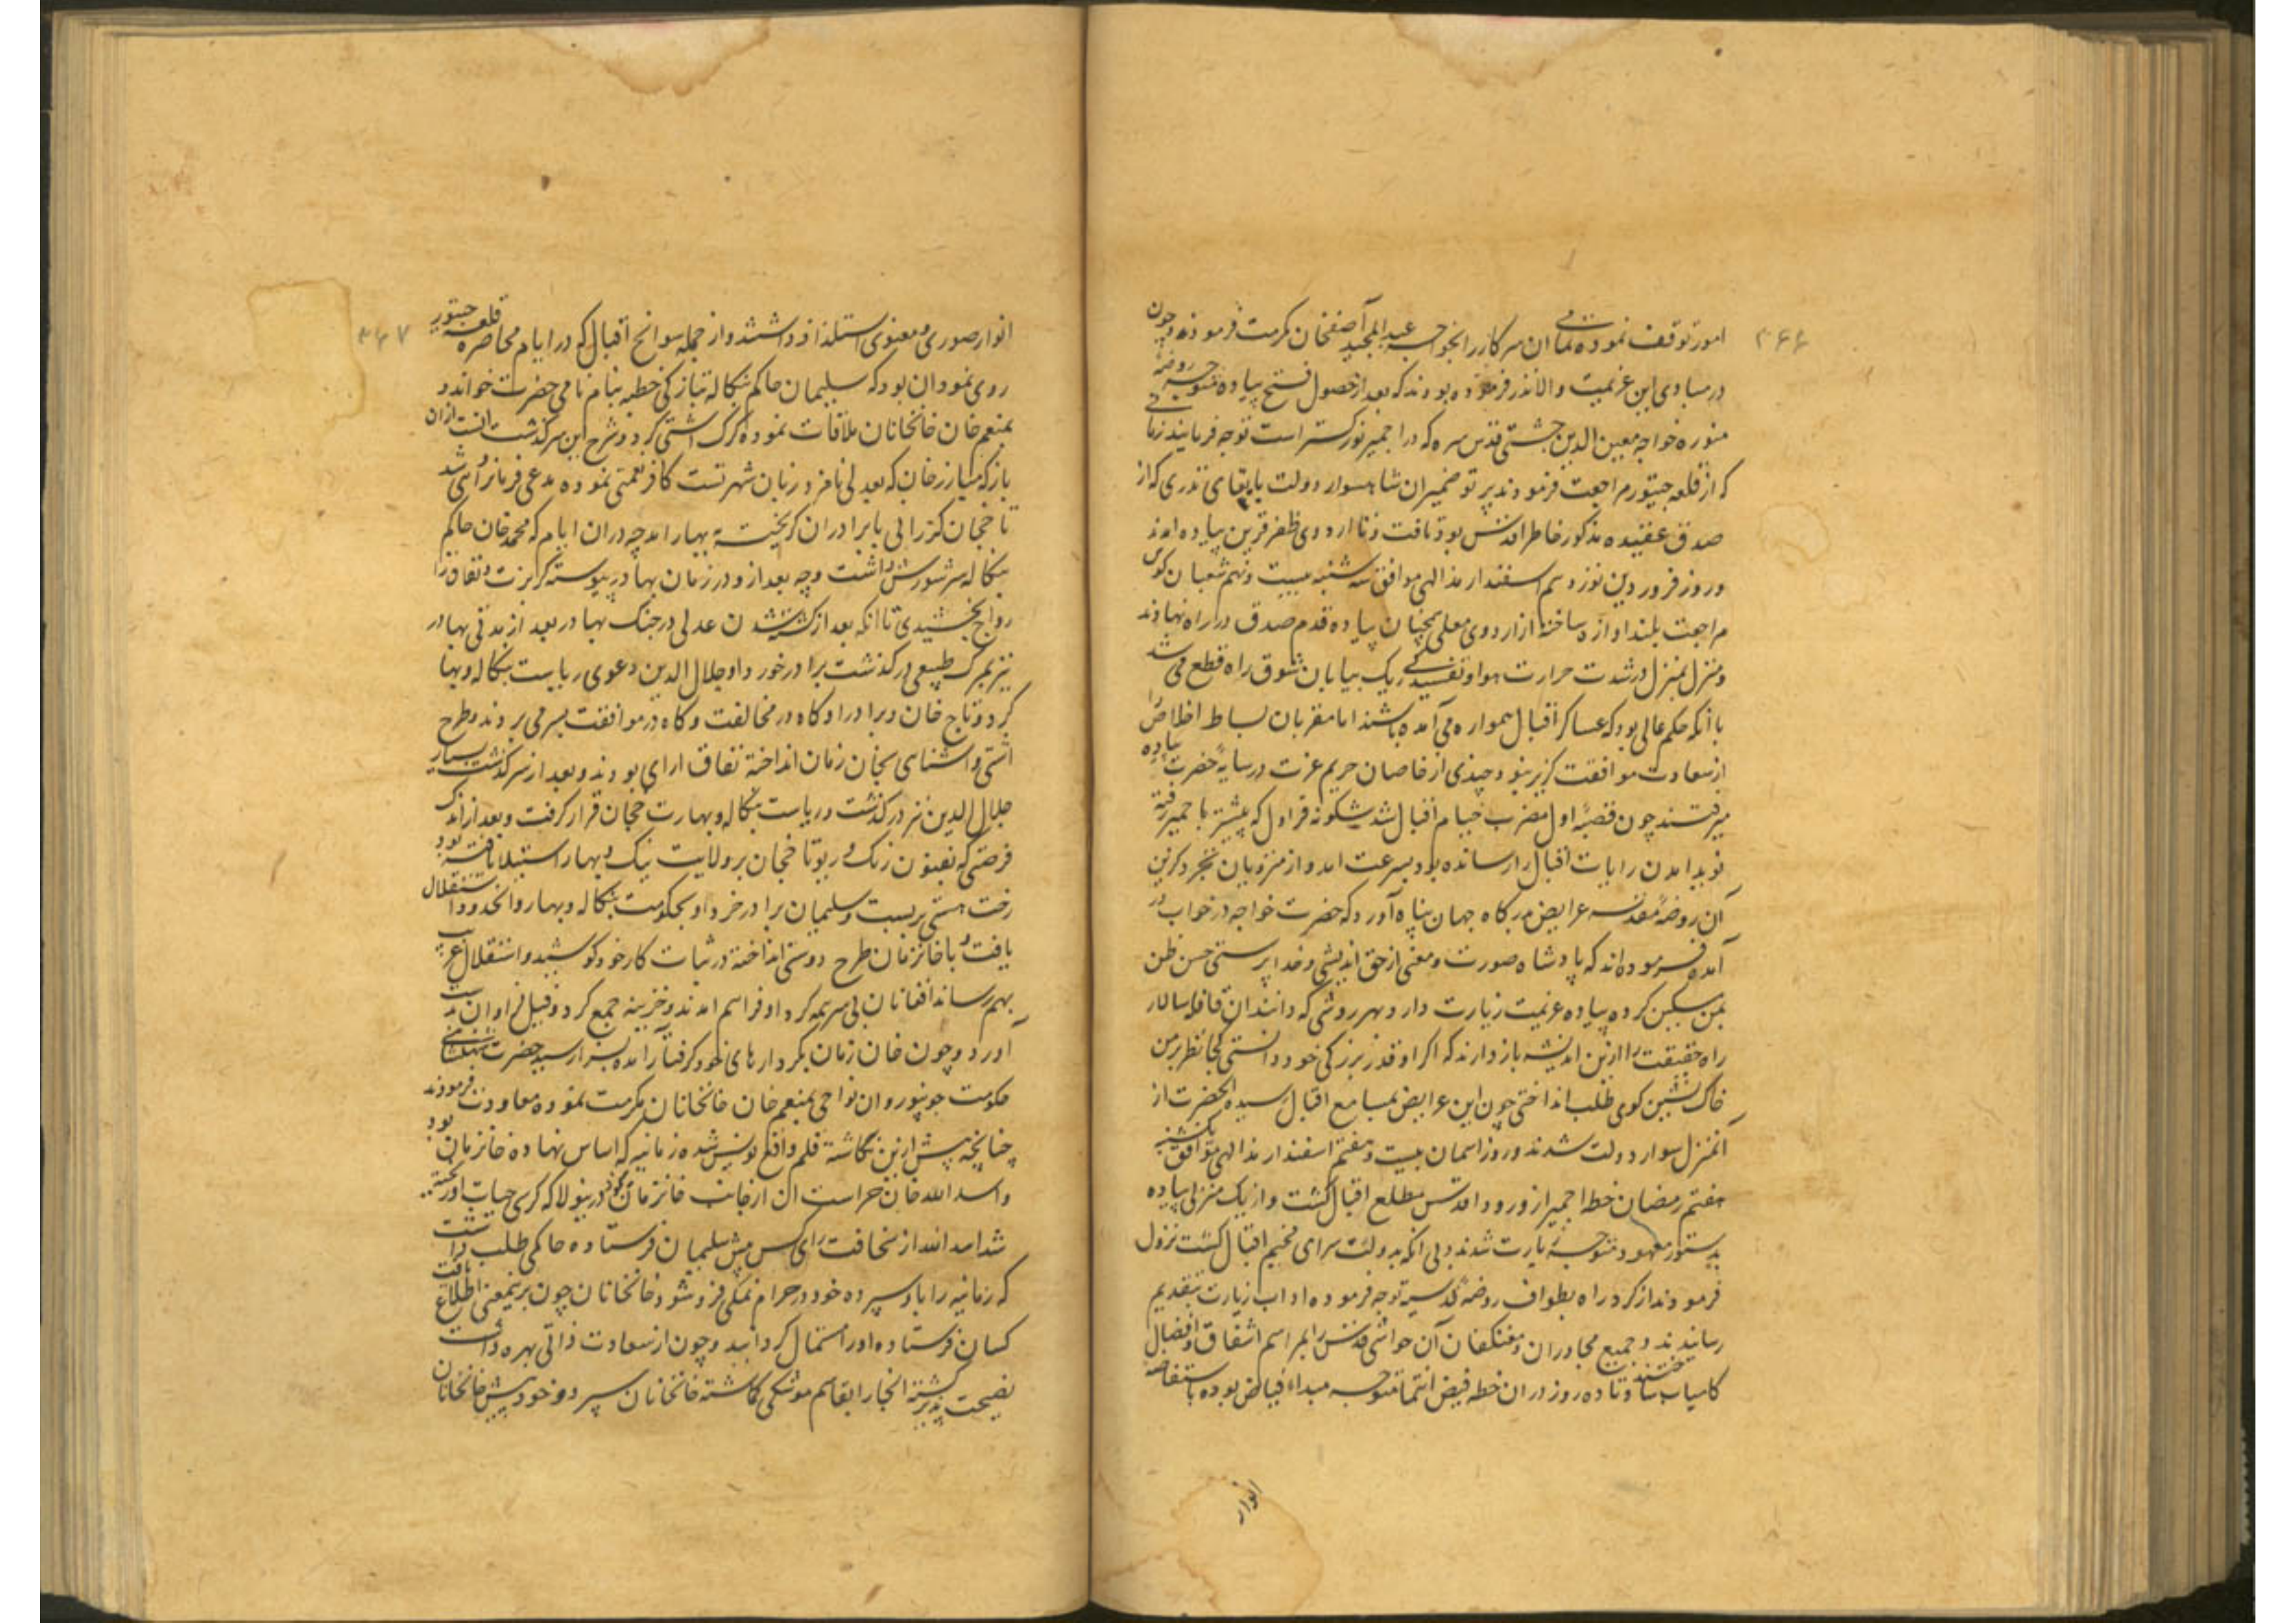 ۳۶۶
امور توقف نموده تمامی ان سرکار را بخواجه عبدالمجید آصفخان مکرمت فرمودند و چون
در مبادی این عزیمت والا نذر فرموده بودند که بعد از حصول فتح پیاده متوجه روضهٔ
منوره خواجه معین الدین چشتی قدس سره که در اجمیر نور کستر است توجه فرمایند زمانی
که از قلعه چیتور مراجعت فرمودند پرتو ضمیر ان شاهسوار دولت بایفای نذری که از
صدق عقیده مذکور خاطر اقدس بود تافت و تا اردوی ظفر قرین پیاده امدند
و روز فروردین نوزدهم اسفندارمذ الهی موافق سه شنبه بیست و نهم شعبان کوس
مراجعت بلند اوازه ساخته از اردوی معلی همچنان پیاده قدم صدق در راه نهادند
و منزل بمنزل در شدت حرارت هوا و تفسیدکی ریک بیابان بشوق راه قطع می شد
با آنکه حکم عالی بود که عساکر اقبال سواره می آمده باشند اما مقربان بساط اخلاص را
از سعادت موافقت کزیر نبود و چندی از خاصان حریم عزت در سایهٔ حضرت پیاده
میرفتند چون قصبهٔ اول مضرب خیام اقبال شد شکونه قراول که پیشتر باجمیر رفته
نوید امدن رایات اقبال را رسانده بود بسرعت امد و از منزویان تجرد کزین
آن روضهٔ مقدسه عرایض بدرکاه جهان پناه آورد که حضرت خواجه در خواب در
آمده فرموده اند که پادشاه صورت و معنی از حق اندیشی و خدا پرستی حسن ظن
بمن مسکین کرده پیاده عزیمت زیارت دارد بهر روشی که دانند ان قافله سالار
راه حقیقت را ازین اندیشه باز دارند که اکر او قدر بزرکی خود دانستی کجا نظر بر من
خاک نشین کوی طلب انداختی چون این عرایض بمسامع اقبال رسید انحضرت از
آنمنزل سوار دولت شدند و روز اسمان بیست و هفتم اسفندارمذ الهی موافق یکشنبه
هفتم رمضان خطه اجمیر از ورود اقدس مطلع اقبال کشت و از یک منزلی پیاده
بدستور معهود متوجه زیارت شدند و بی انکه بدولت سرای مخیم اقبال کشت نزول
فرمودند از کرد راه بطواف روضهٔ قدسیه توجه فرموده اداب زیارت بتقدیم
رسانیدند و جمیع مجاوران و معتکفان آن حواشی قدس را بمراسم اشفاق و افضال
کامیاب ساختند و تا ده روز در ان خطه فیض انتما متوجه مبداء فیاض بوده باستفاضه
انوار
۳۶۷
انوار صوری و معنوی استلذاذ داشتند و از جمله سوانح اقبال که در ایام محاصره قلعه چیتور
روی نمود ان بود که سلیمان حاکم بنکاله بتازکی خطبه بنام نامی حضرت خواند و
بمنعم خان خانخانان ملاقات نموده کرک اشتی کرد و شرح این سرکذشت انست از ان
باز که مبارز خان که بعدلی نامزد زبان شهرتست کافر نعمتی نموده مدعی فرمانروائی شد
تاجخان کررانی با برادران کریخته ببهار امد چه دران ایام که محمد خان حاکم
بنکاله سر شورش داشت و چه بعد ازو در زمان بهادر پیوسته کربزت و نفاق را
رواج بخشیدی تا انکه بعد از کشته شدن عدلی در جنک بهادر بعد از مدتی بهادر
نیز بمرک طبیعی درکذشت برادر خورد او جلال الدین دعوی ریاست بنکاله و بهار
کرد و تاج خان و برادر او کاه در مخالفت و کاه در موافقت بسر می بردند و طرح
اشتی و اشنای بخان زمان انداخته نفاق ارای بودند و بعد از سرکذشت بسیار
جلال الدین نیز درکذشت و ریاست بنکاله و بهار بتاجخان قرار کرفت و بعد از اندک
فرصتی که بفنون زنک و ریو تاجخان بر ولایت بنک و بهار استیلا یافته بود
رخت هستی بربست و سلیمان برادر خرد او بحکومت بنکاله و بهار و انحدود استقلال
یافت و با خانزمان طرح دوستی انداخته در ثبات کار خود کوشید و استقلال غریب
بهم رساند افغانان بی سر همه کرد او فراهم امدند و خزینه جمع کرد و فیل فراوان بدست
آورد و چون خان زمان بکردارهای خود کرفتار آمده بسزا رسید حضرت شهنشاهی
حکومت جونپور و ان نواحی بمنعم خان خانخانان مکرمت نموده معاودت فرمودند
چنانچه پیش ازین نکاشته قلم واقع نویس شده زمانیه که اساس نهاده خانزمان بود
و اسد الله خان حراست ان از جانب خانزمان نمودی درینولا که کرسی حیات او ریخته
شد اسد الله از سخافت رای کس پیش سلیمان فرستاده حاکمی طلب داشت
که زمانیه را باو سپرده خود در حرام نمکی فرو شود خانخانان چون برینمعنی اطلاع یافت
کسان فرستاده او را استمال کردانید و چون از سعادت ذاتی بهره داشت
نصیحت پذیر کشته انجا را بقاسم موشکی کماشته خانخانان سپرد و خود پیش خانخانان